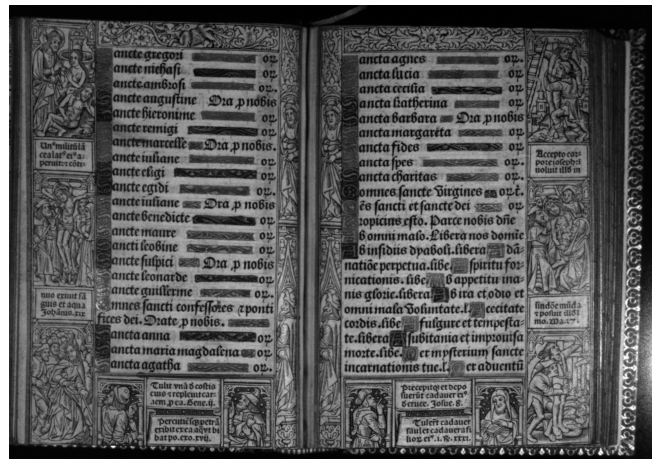 ancte gregori or.
ancte nichasi or.
ancte ambrosi or.
ancte augustine Ora p nobis
ancte hieronime or.
ancte remigi or.
ancte marcelle Ora p nobis.
ancte iuliane or.
ancte eligi or.
ancte egidi or.
ancte iuliane Ora p nobis
ancte benedicte or.
ancte maure or.
ancti leobine or.
ancte sulpici Ora p nobis
ancte leonarde or.
ancte guillerme or.
mnes sancti confessores et ponti
fices dei. Orate p nobis.
ancta anna or.
ancta maria magdalena or.
ancta agatha or.
Un' militū lā
cea lat' ei' a-
peruit: et cōti-
nuo exiuit sā
guis et aqua
Johānis. xix
Tulit vnā d costis
eius et repleuit car-
nem p ea. Gene. ij.
Percuties petrā
exibit ex ea aqua vt bi
bat po. exo. xvij.
ancta agnes or.
ancta lucia or.
ancta cecilia or.
ancta katherina or.
ancta barbara Ora p nobis
ancta margareta or.
ancta fides or.
ancta spes or.
ancta charitas or.
omnes sancte Virgines or.
ēs sancti et sancte dei or.
ropicius esto. Parce nobis dñe
b omni malo. Libera nos domie
b insidiis dyaboli. libera dā-
natiōe perpetua. libe spiritu for-
nicationis. libe b appetitu ina-
nis glorie. libera b ira et odio et
omni mala Voluntate. l cecitate
cordis. libe fulgure et tempesta-
te. libera subitania et improuisa
morte. libe. er mysterium sancte
incarnationis tue. l. er aduentū
Accepto cor-
pore ioseph i
uoluit illd in
sindōe mūda
et posuit illd i
mo. Ma. 27.
Precepitq; et depo
suerūt cadauer ei'
d cruce. Josue. 8.
Tulerūt cadauer
saul et cadauera fi
lior. ei'. i. R. xxxi.